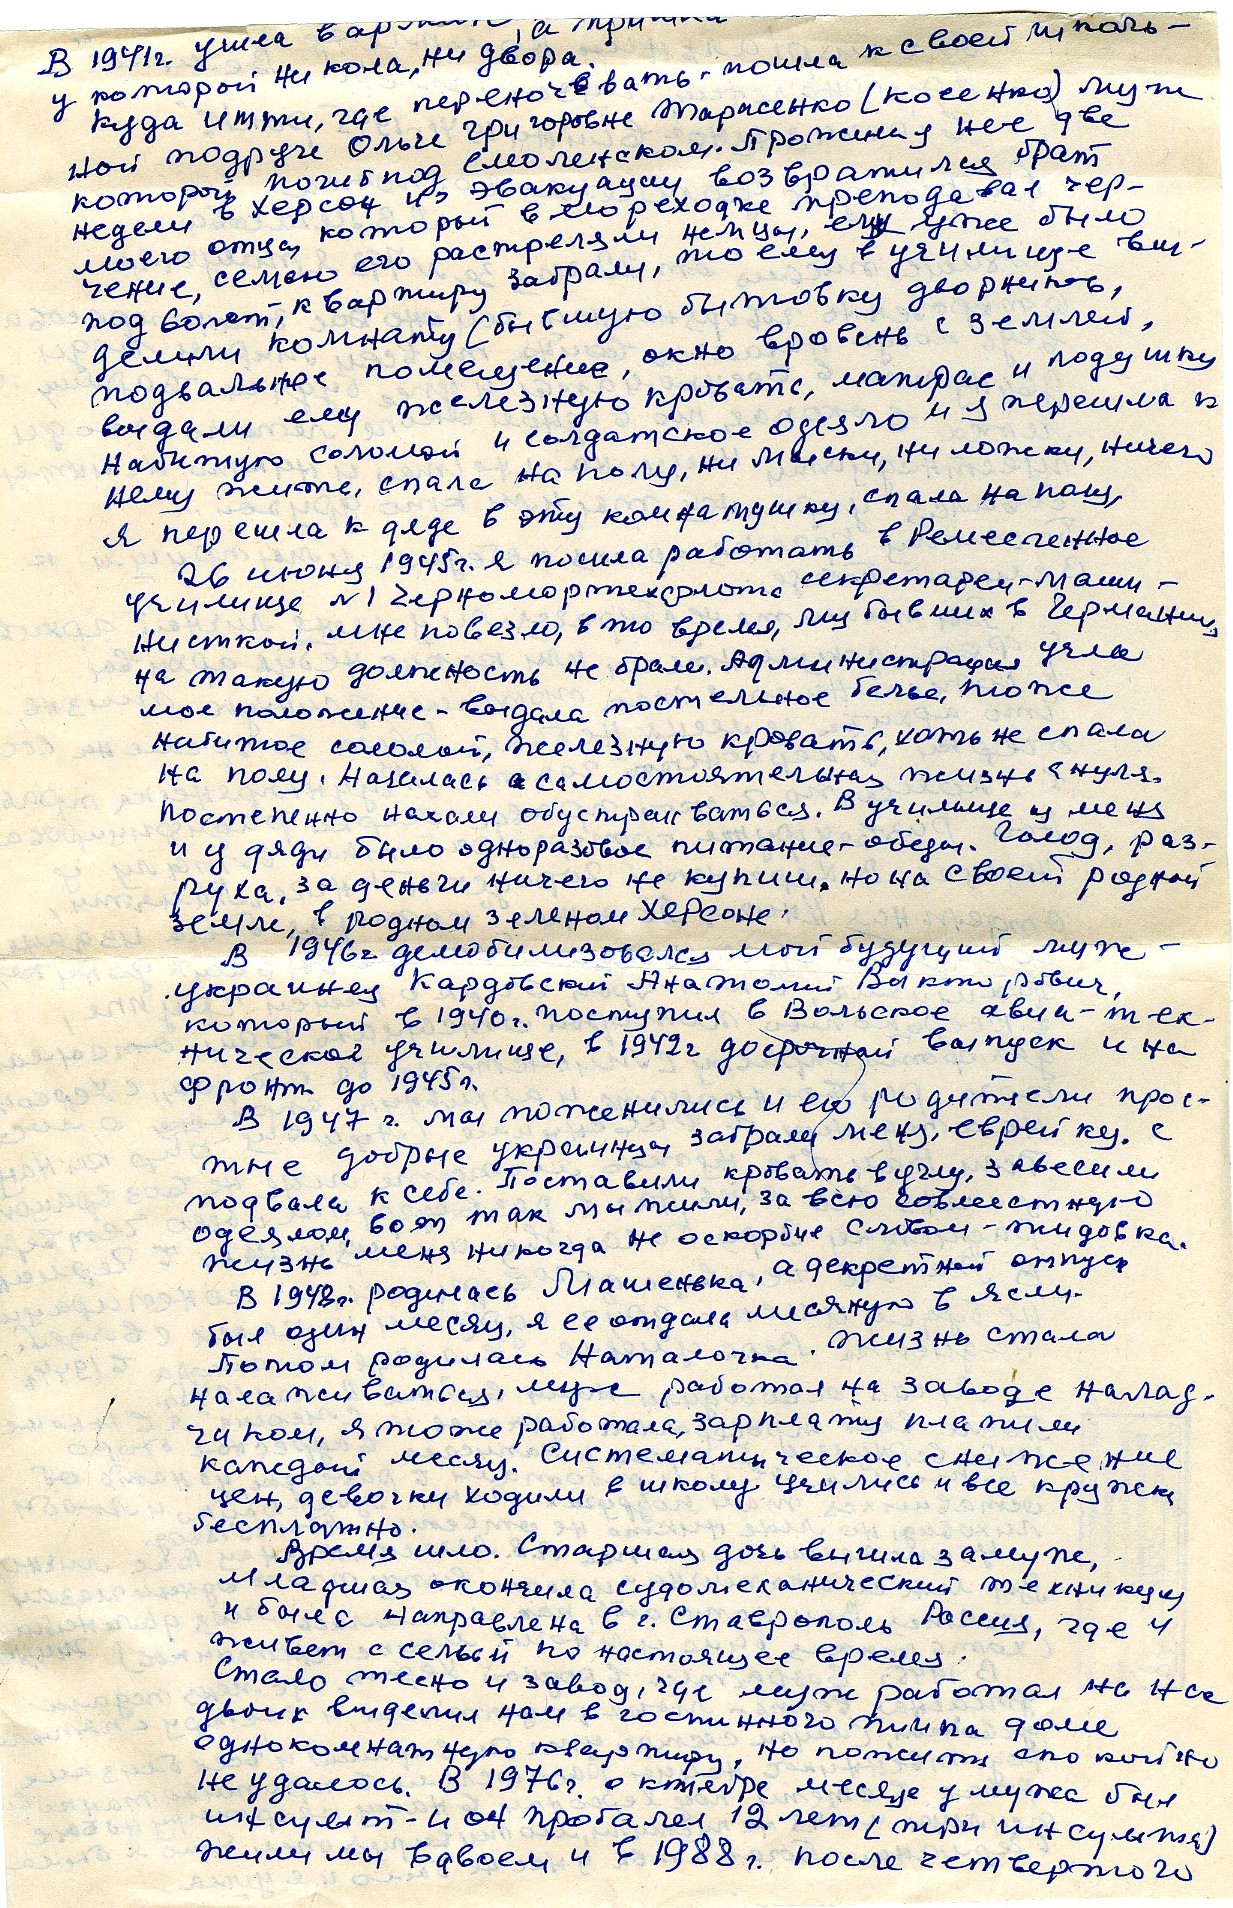 В 1941г. ушла в армию, а пришла
у которой ни кола, ни двора.
Куда итти, где переночевать - пошла к своей школь-
ной подруге Ольге Григоровне Тарасенко (Косенко) муж
которой погиб под Смоленском. Прожила у нее две
недели в Херсон из эвакуации возвратился брат
моего отца, который в мореходке преподавал чер-
чение, семью его растреляли немцы, ему уже было
под 60 лет, квартиру забрали, то ему в училище вы-
делили комнату (бывшую бытовку дворников,
подвальное помещение, окно вровень с землей,
выдали ему железную кровать, матрас и подушку
набитую соломой и солдатское одеяло и я перешла к
нему жить, спала на полу, ни миски, ни ложки, ничего
я перешла к дяде в эту комнатушку, спала на полу.
26 июня 1945г. я пошла работать в Ремесленное
училище №1 Черномортехфлота секретарем-маши-
нисткой. мне повезло, в то время, лиц бывших в Германии,
на такую должность не брали. Администрация учла
мое положение - выдала постельное белье, тоже
набитое соломой, железную кровать, хоть не спала
на полу. Началась а самостоятельная жизнь с нуля.
Постепенно начали обустраиваться. В училище у меня
и у дяди было одноразовое питание - обеды. Голод, раз-
руха, за деньги ничего не купиш, но на своей родной
земле, в родном зеленом Херсоне.
В 1946г. демобилизовался мой будущий муж -
украинец Кардовский Анатолий Викторович,
который в 1940г. поступил в Вольское авиа-тех-
ническое училище, в 1942г досрочной выпуск и на
фронт до 1945г.
В 1947 г. мы поженились и его родители прос-
тые добрые украинцы забрали меня, еврейку, с
подвала к себе. Поставили кровать в углу, завесили
одеялом, вот так мы жили, за всю совместную
жизнь меня никогда не оскорбил словом - жидовка.
В 1948г. родилась Машенька, а декретной отпуск
был один месяц, я ее отдала месячную в ясли.
Потом родилась Наталочка. Жизнь стала
налаживаться, муж работал на заводе налад-
чиком, я тоже работала, зарплату платили
каждый месяц. Систематическое снижение
цен, девочки ходили в школу учились и все кружки
бесплатно.
Время шло. Старшая дочь вышла замуж,
младшая окончила судомеханический техникум
и была направлена в г. Ставрополь Россия, где и
живет с семьей по настоящее время.
Стало тесно и завод, где муж работал на нас
двоих выделил нам в гостинного типа доме
однокомнатную квартиру, но пожить спокойно
не удалось. В 1976г. октябре месяце у мужа был
инсульт - и он проболел 12 лет (три инсульта)
жили мы вдвоем и в 1988г. после четвертого